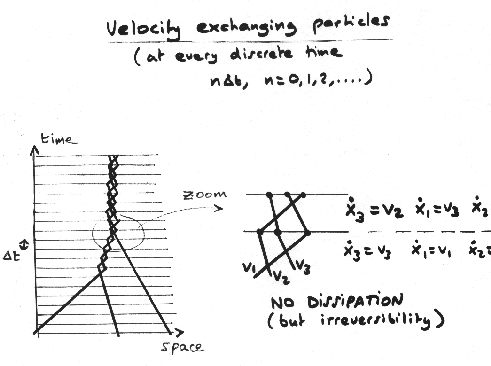 Velocity exchanging particles
(at every discrete time
nΔt, n=0,1,2,....)
time
Δt
space
zoom
ẋ₃ = v₂ ẋ₁ = v₃ ẋ₂
ẋ₃ = v₃ ẋ₁ = v₁ ẋ₂ =
v₁ v₂ v₃
NO DISSIPATION
(but irreversibility)